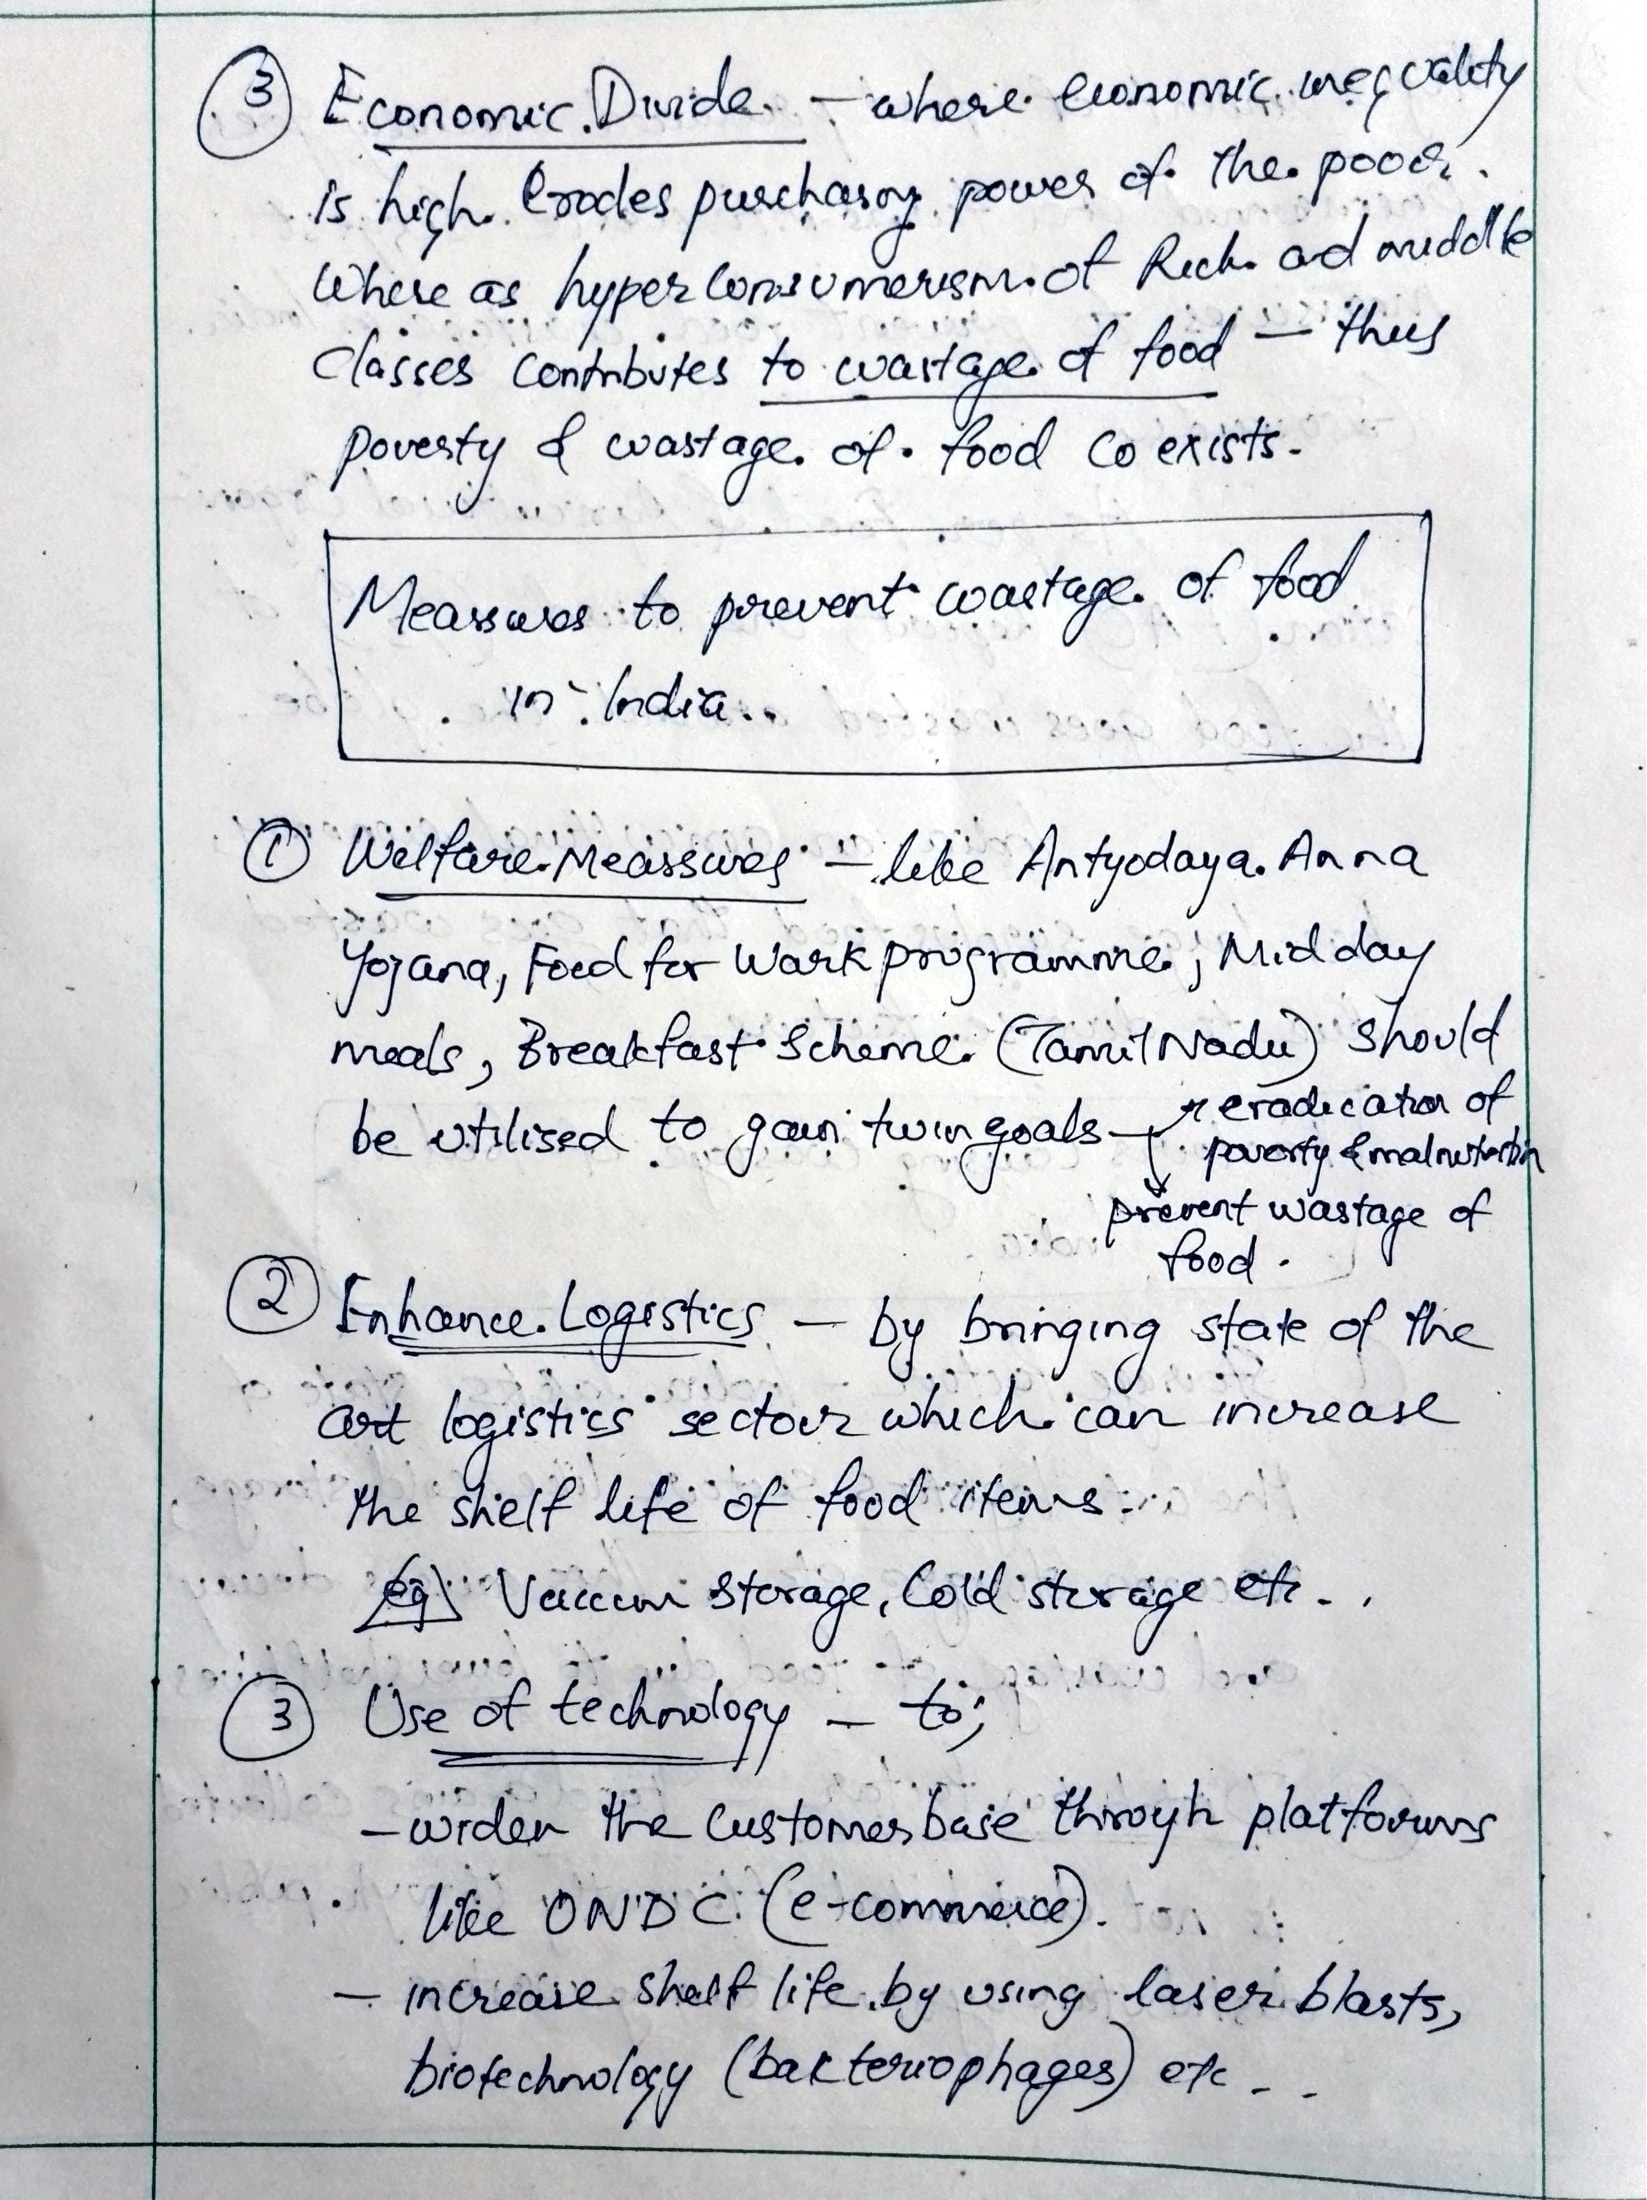 ③ Economic Divide - where economic inequality
is high. Erodes purchasing power of the poor.
Where as hyper consumerism of Rich ad middle
classes contributes to wastage of food - thus
poverty & wastage of food co exists.
Meassures to prevent wastage of food
in India..
① Welfare Meassures - like Antyodaya Anna
Yojana, Food for Work programme, Mid day
meals, Breakfast Scheme (Tamil Nadu) should
be utilised to gain twin goals → eradication of
poverty & malnutrition
prevent wastage of
food.
② Enhance Logistics - by bringing state of the
art logistics sector which can increase
the shelf life of food items.
eg) Vaccum storage, Cold storage etc..
③ Use of technology - to;
- widen the customer base through platforms
like ONDC (e-commerce).
- increase shelf life by using laser blasts,
biotechnology (bakteriophages) etc..